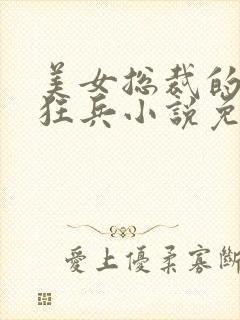 美女总裁的
狂兵小説免
愛上優柔寡斷